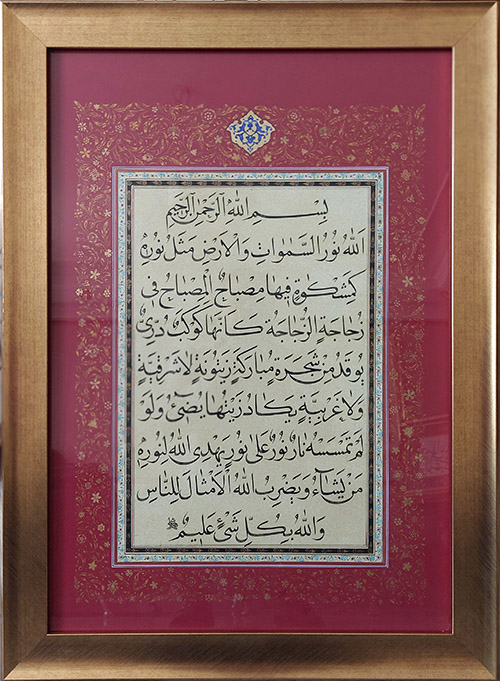 بِسْمِ اللهِ الرَّحْمنِ الرَّحِيمِ
اَللهُ نُورُ السَّمٰوَاتِ وَالْاَرْضِ مَثَلُ نُورِهٖ
كَمِشْكٰوةٍ فِيهَا مِصْبَاحٌ اَلْمِصْبَاحُ فِي
زُجَاجَةٍ اَلزُّجَاجَةُ كَاَنَّهَا كَوْكَبٌ دُرِّيٌّ
يُوقَدُ مِنْ شَجَرَةٍ مُبَارَكَةٍ زَيْتُونَةٍ لَا شَرْقِيَّةٍ
وَلَا غَرْبِيَّةٍ يَكَادُ زَيْتُهَا يُضِيۤئُ وَلَوْ
لَمْ تَمْسَسْهُ نَارٌ نُورٌ عَلٰى نُورٍ يَهْدِي اللهُ لِنُورِهٖ
مَنْ يَشَاۤءُ وَيَضْرِبُ اللهُ الْاَمْثَالَ لِلنَّاسِ
وَاللهُ بِكُلِّ شَيْئٍ عَلِيمٌ